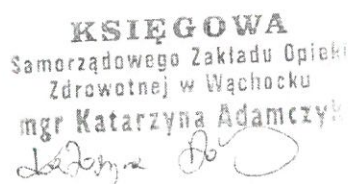 KSIĘGOWA
Samorządowego Zakładu Opieki
Zdrowotnej w Wąchocku
mgr Katarzyna Adamczyk